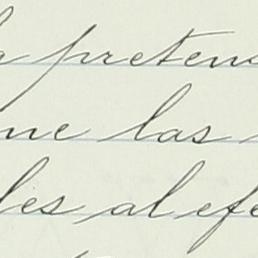 a pretens
ue las
les al efe